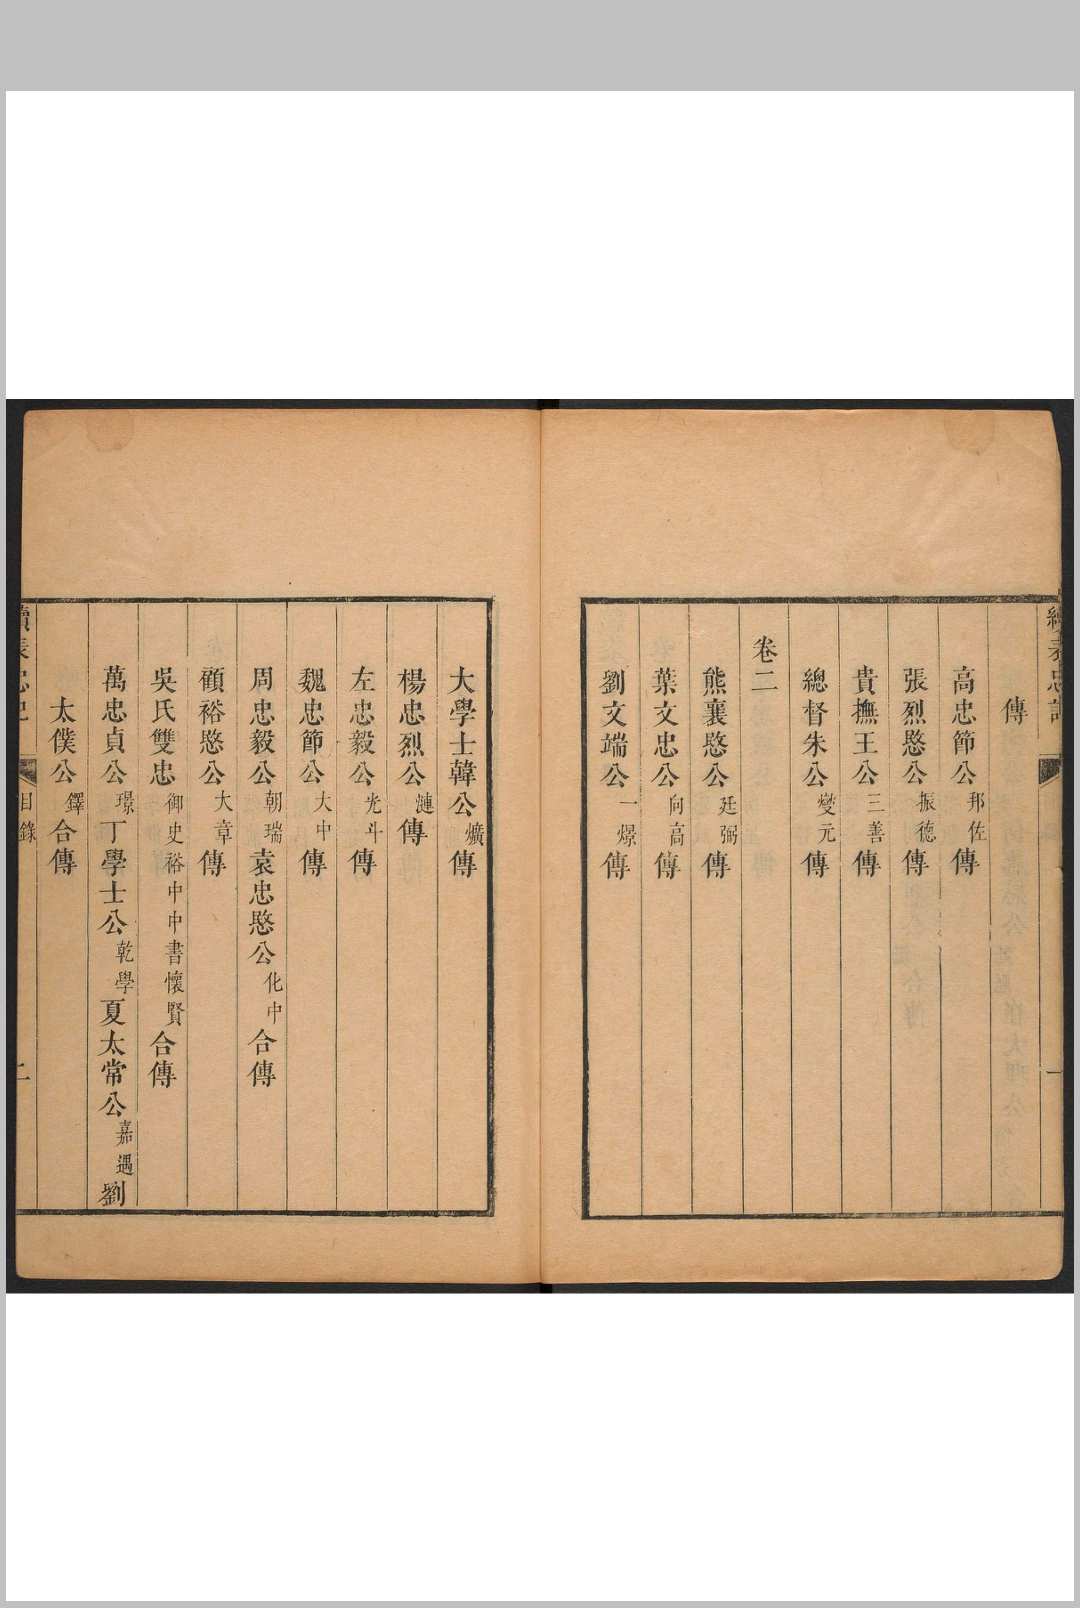 續表忠記
一
傳
高忠節公邦佐傳
張烈愍公振德傳
貴撫王公三善傳
總督朱公燮元傳
卷二
熊襄愍公廷弼傳
葉文忠公向高傳
劉文端公一燝傳
大學士韓公爌傳
楊忠烈公漣傳
左忠毅公光斗傳
魏忠節公大中傳
周忠毅公朝瑞袁忠愍公化中合傳
顧裕愍公大章傳
吳氏雙忠御史裕中中書懷賢合傳
萬忠貞公璟丁學士公乾學夏太常公嘉遇劉
太僕公鐸合傳
續表忠記
目錄
二